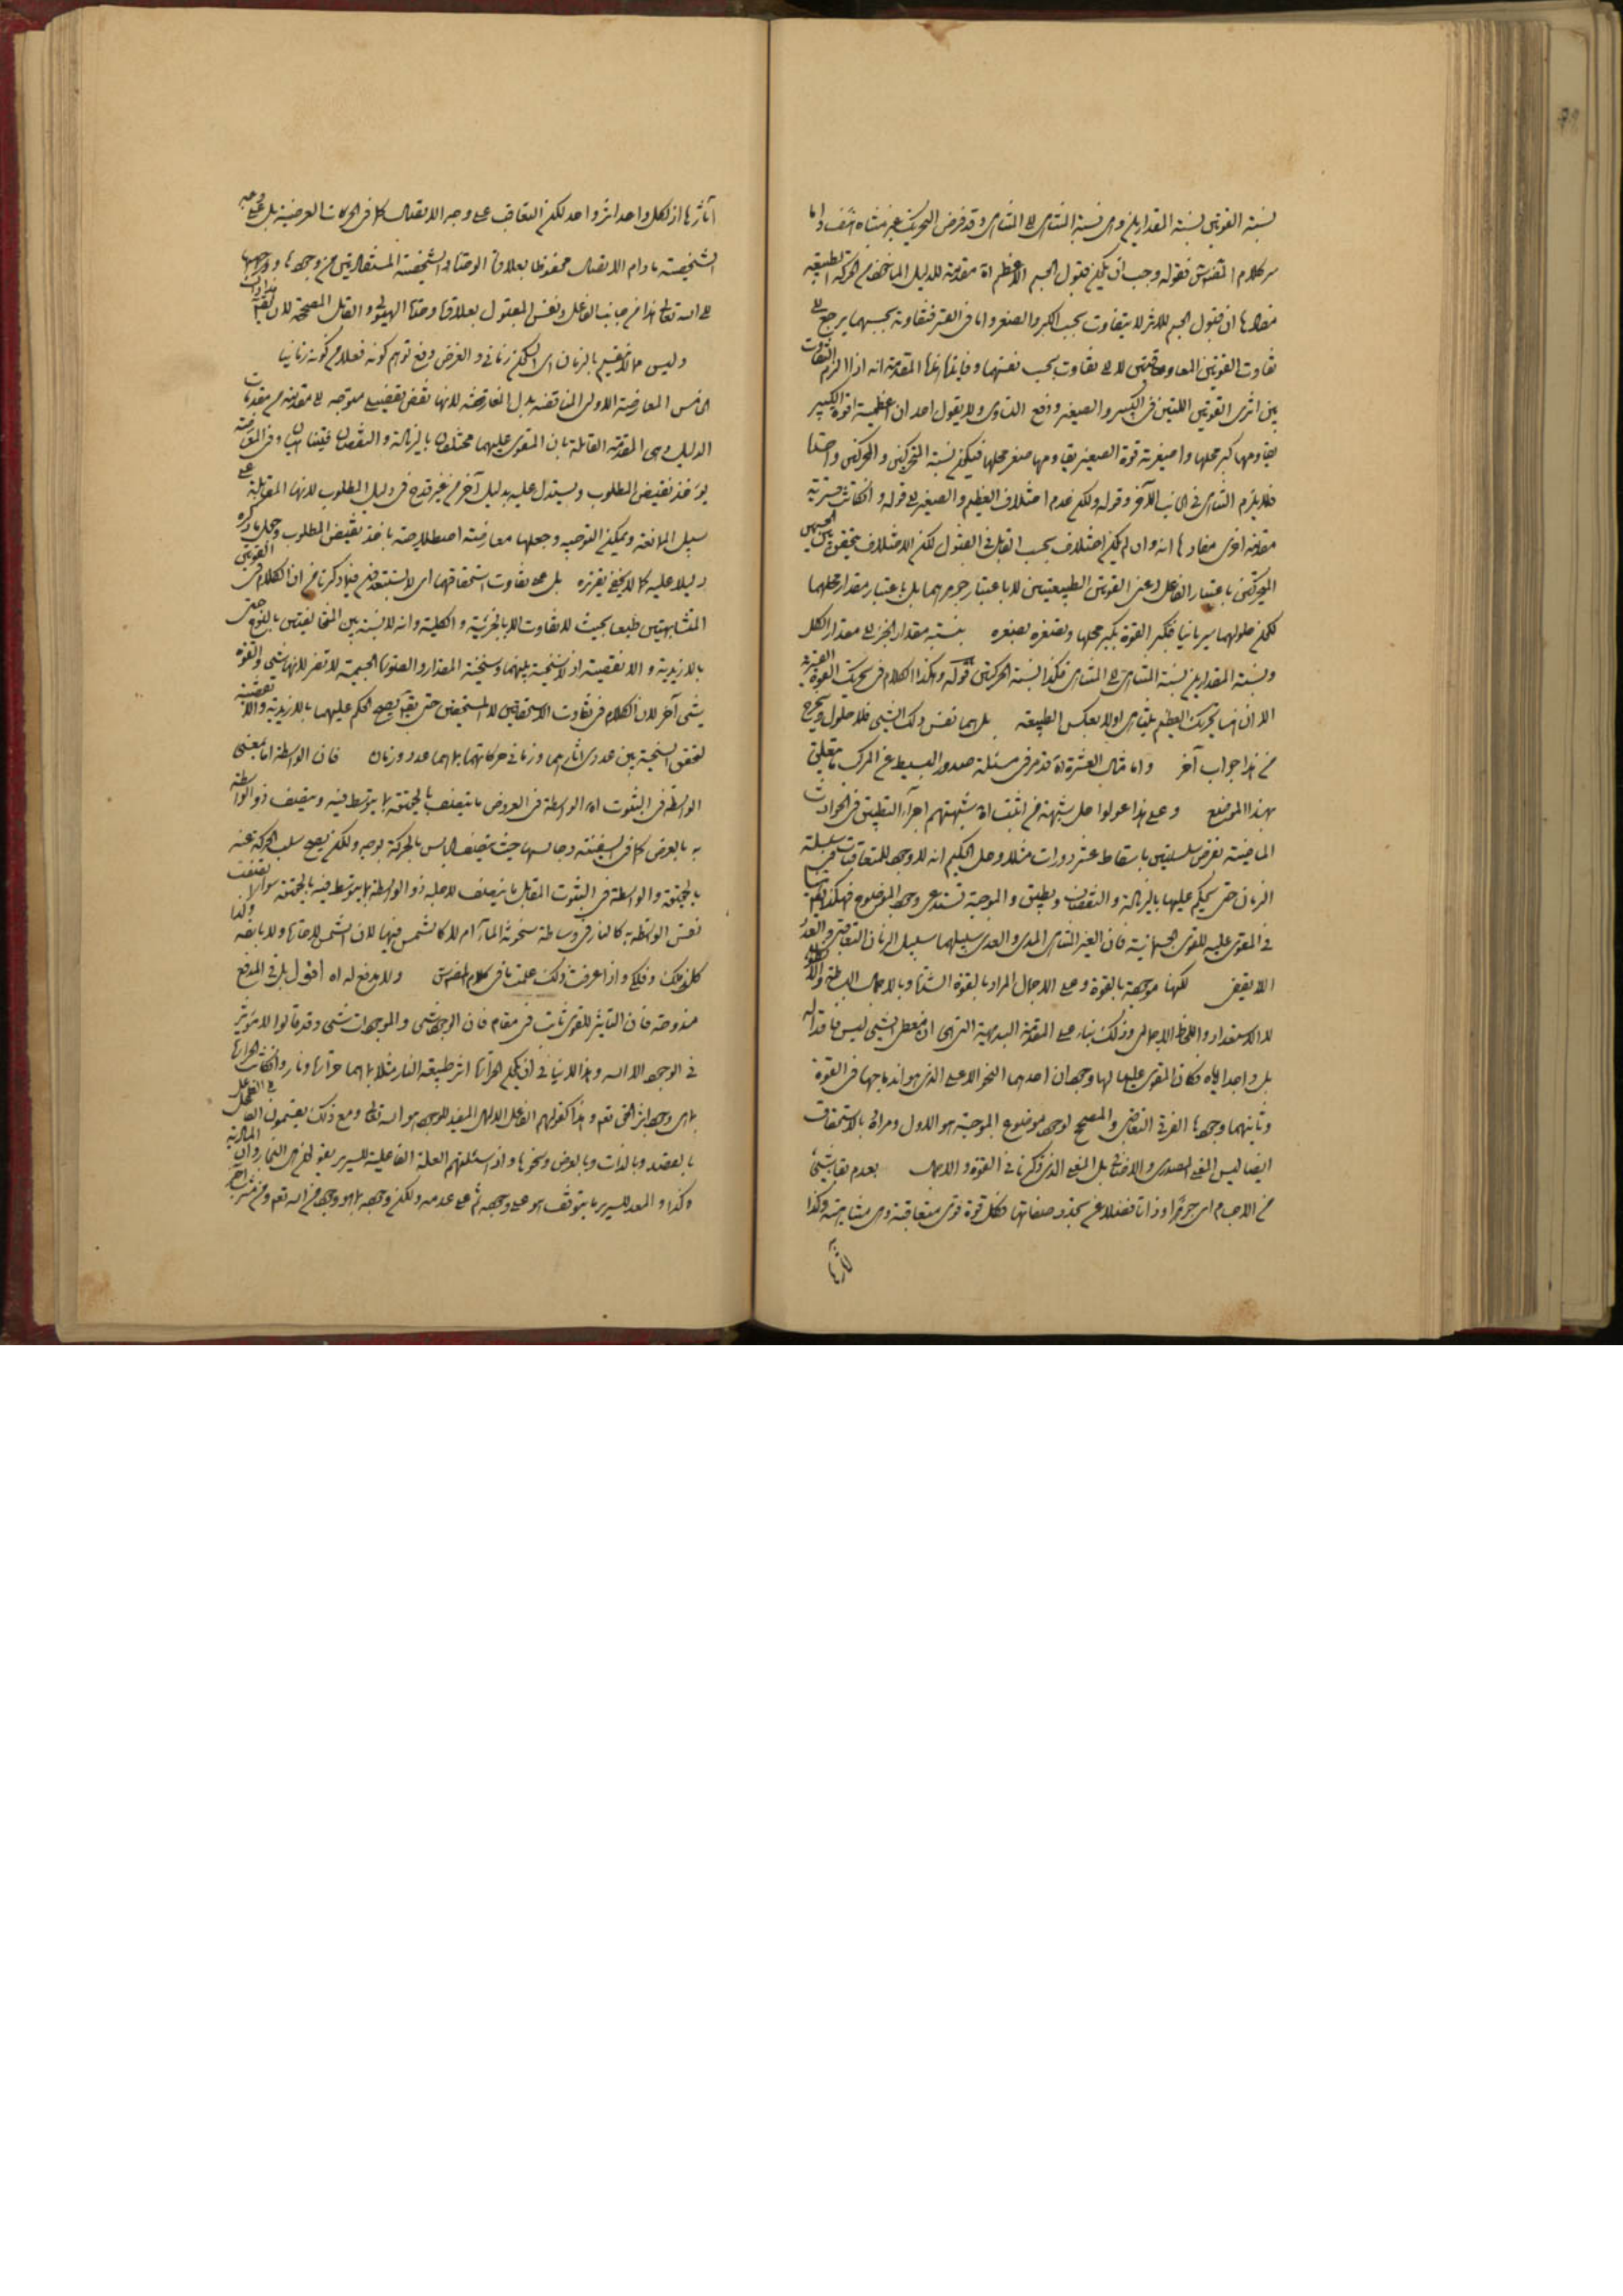 نسبة القوتين نسبة المقدارين وهى نسبة المتناهى الى المتناهى وقد فرض التحريك غير متناه هف واما
سر كلام المفتش فقوله وجب ان يكون قبول الجسم الاعظم اه مقدمة للدليل الماخوذ من الحركة الطبيعية
مفادها ان قبول الجسم للاثر لا يتفاوت بحسب الكبر والصغر واما فى القسر فتفاوته بحسبهما يرجع الى
تفاوت القوتين المعاوقتين لا الى تفاوت بحسب نفسهما وفايدة هذه المقدمة انه اذا لزم التفاوت
بين اثرى القوتين اللتين فى الكبير والصغير ودفع التساوى ولا يقول احد ان اعظمية قوة الكبير
يقاومها كبر محلها واصغرية قوة الصغير يقاومها صغر محلها فيكون نسبة المتحركين والمحركين واحدة
فلا يلزم التناهى فى الجانب الآخر وقوله ولكن عدم اختلاف العظيم والصغير الى قوله وان كانت قسرية
مقدمة اخرى مفادها انه وان لم يكن اختلاف بحسب القابل فى القبول لكن الاختلاف متحقق بين الجسمين
المتحركين باعتبار الفاعل اعنى القوتين الطبيعيتين لا باعتبار جوهرهما بل باعتبار مقدار محلهما
لكون حلولهما سريانيا فتكبر القوة بكبر محلها وتصغر بصغره بنسبة مقدار الجزء الى مقدار الكل
ونسبة المقدارين نسبة المتناهى الى المتناهى فكذا نسبة الحركتين قوله وهكذا الكلام فى تحريك القوة القسرية
الا ان هنا تحريك العظيم يتناهى اولا بعكس الطبيعة بل هما نفس ذلك الشىء فلا حلول ويخرج
من هذا جواب آخر واما مثال العشرة اه قد مر فى مسئلة صدور البسيط عن المركب ما يتعلق
بهذا الموضع وعلى هذا عولوا حل شبهة من اثبت اه شبهتهم اجراء التطبيق فى الحوادث
الماضية بفرض سلسلتين باسقاط عشر دورات مثلا وحل الحكيم انه لا وجود للمتعاقبات فى سلسلة
الزمان حتى يحكم عليها بالزيادة والنقصان ويطبق والموجبة تستدعى وجود الموضوع فهكذا نقول هنا
فى المقوى عليه للقوى الجسمانية فان الغير المتناهى المدى والعدى سبيلهما سبيل الزمان التعاقب والعدد
الا يقفى لكنها موجودة بالقوة وعلى الاجمال المراد بالقوة الشدة وبالاجمال البساطة والا
لا الاستعداد واللحاظ الاجمالى وذلك بناء على المقدمة البديهية التى هى ان معطى الشىء ليس فاقدا له
بل واجدا اياه فكان المقوى عليها لها وجودان احدهما النحو الاعلى الذى هو اندماجها فى القوة
وثانيهما وجودها الفرقى التعاقبى والمصحح لوجود موضوع الموجبة هو الاول ومراده بالاستحقاق
ايضا ليس المعنى المصدرى والاضافى بل المعنى الذى ذكرنا فى القوة والاجمال بعدم بقاء شىء
من الاجسام اى جوهرا وذاتا فضلا عن تجدد صفاتها فكل قوة قوى متعاقبة وهى متناهية وكذا
آثارها
آثارها اذ لكل واحد اثر واحد لكن التعاقب على وجه الاتصال كما فى الحركات العرضية بل على وجه
الشخصية مادام الاتصال محفوظا بعلاوة الوحدة الشخصية المستفادتين من وجهها ووجهها
الى الله تعالى هذا من جانب الفاعل ونفس المعلول بعلاوة وحدة الهيولى والقابل المصححة لان
وليس ما لا يقع بالزمان اى لا يكون زمانى والغرض دفع توهم كونه فعلا من كونه زمانيا
الخامس المعارضة الاولى المناقضة بدل المعارضة لانها نقض تفصيلى متوجه الى مقدمة من مقدمات
الدليل وهى المقدمة القائلة بان المقوى عليهما مختلفان بالزيادة والنقصان وفى المعارضة
يؤخذ نقيض المطلوب ويستدل عليه بدليل آخر من غير قدح فى دليل المطلوب لانها المقابلة على
سبيل الممانعة ويمكن التوجيه وجعلها معارضة اصطلاحية باخذ نقيض المطلوب وجعل ما ذكره
دليلا عليه كما لا يخفى تقريره بل على تفاوت استحقاقهما اى لا يستبعدن فيما ذكرنا من ان الكلام فى القوتين
المتشابهتين طبعا بحيث لا تفاوت الا بالجزئية والكلية وانه لا نسبة بين المتخالفتين بالنوع حتى
بالازيدية والانقصية اذ لا سنخية بينهما وسنخية المقدار والصورة الجسمية لا تضر لانها شىء والقوة
شىء آخر لان الكلام فى تفاوت الاستحقاقين لا المستحقين حتى يصح الحكم عليهما بالازيدية والانقصية
لتحقق السنخية بين عددى آثارهما وزمانى حركاتهما بما هما عدد وزمان فان الواسطة اما بمعنى
الواسطة فى الثبوت اه الواسطة فى العروض ما يتصف بالحقيقة بما يتوسط فيه ويتصف ذو الواسطة
به بالعرض كما فى السفينة وجالسها حيث يتصف الجالس بالحركة بوجه ولكن يصح سلب الحركة عنه
بالحقيقة والواسطة فى الثبوت المقابل ما يتصف لاجله ذو الواسطة بما يتوسط فيه بالحقيقة سواء اتصفت
نفس الواسطة به كالنار فى وساطة سخونة الماء ام لا كالشمس فيها لان الشمس لا حارة ولا باردة
كلونك وفلك واذا عرفت ذلك علمت ما فى كلام المفتش ولا مدفع له اه اقول بل فى المدفع
مندوحة فان التاثير للقوى ثابت فى مقام فان الوجود شىء والموجودات شىء وقد قالوا لا مؤثر
فى الوجود الا الله وهذا لا ينافى ان يكون الحرارة اثر طبيعة النار مثلا بما هما حرارة ونار وان كانت الحرارة
بما هى وجود اثر الحق تعالى وهذا كقولهم الفاعل الالهى المفيد للوجود هو الله تعالى ومع ذلك يقسمون الفاعل
بالقصد وبالذات وبالعرض ونحوها واذا سئلتهم العلة الفاعلية للسرير يقولون هى النجار
وكذا والمعد للسرير ما يتوقف هو على وجوده ثم على عدمه ولكن وجوده بما هو وجود من الله تعالى